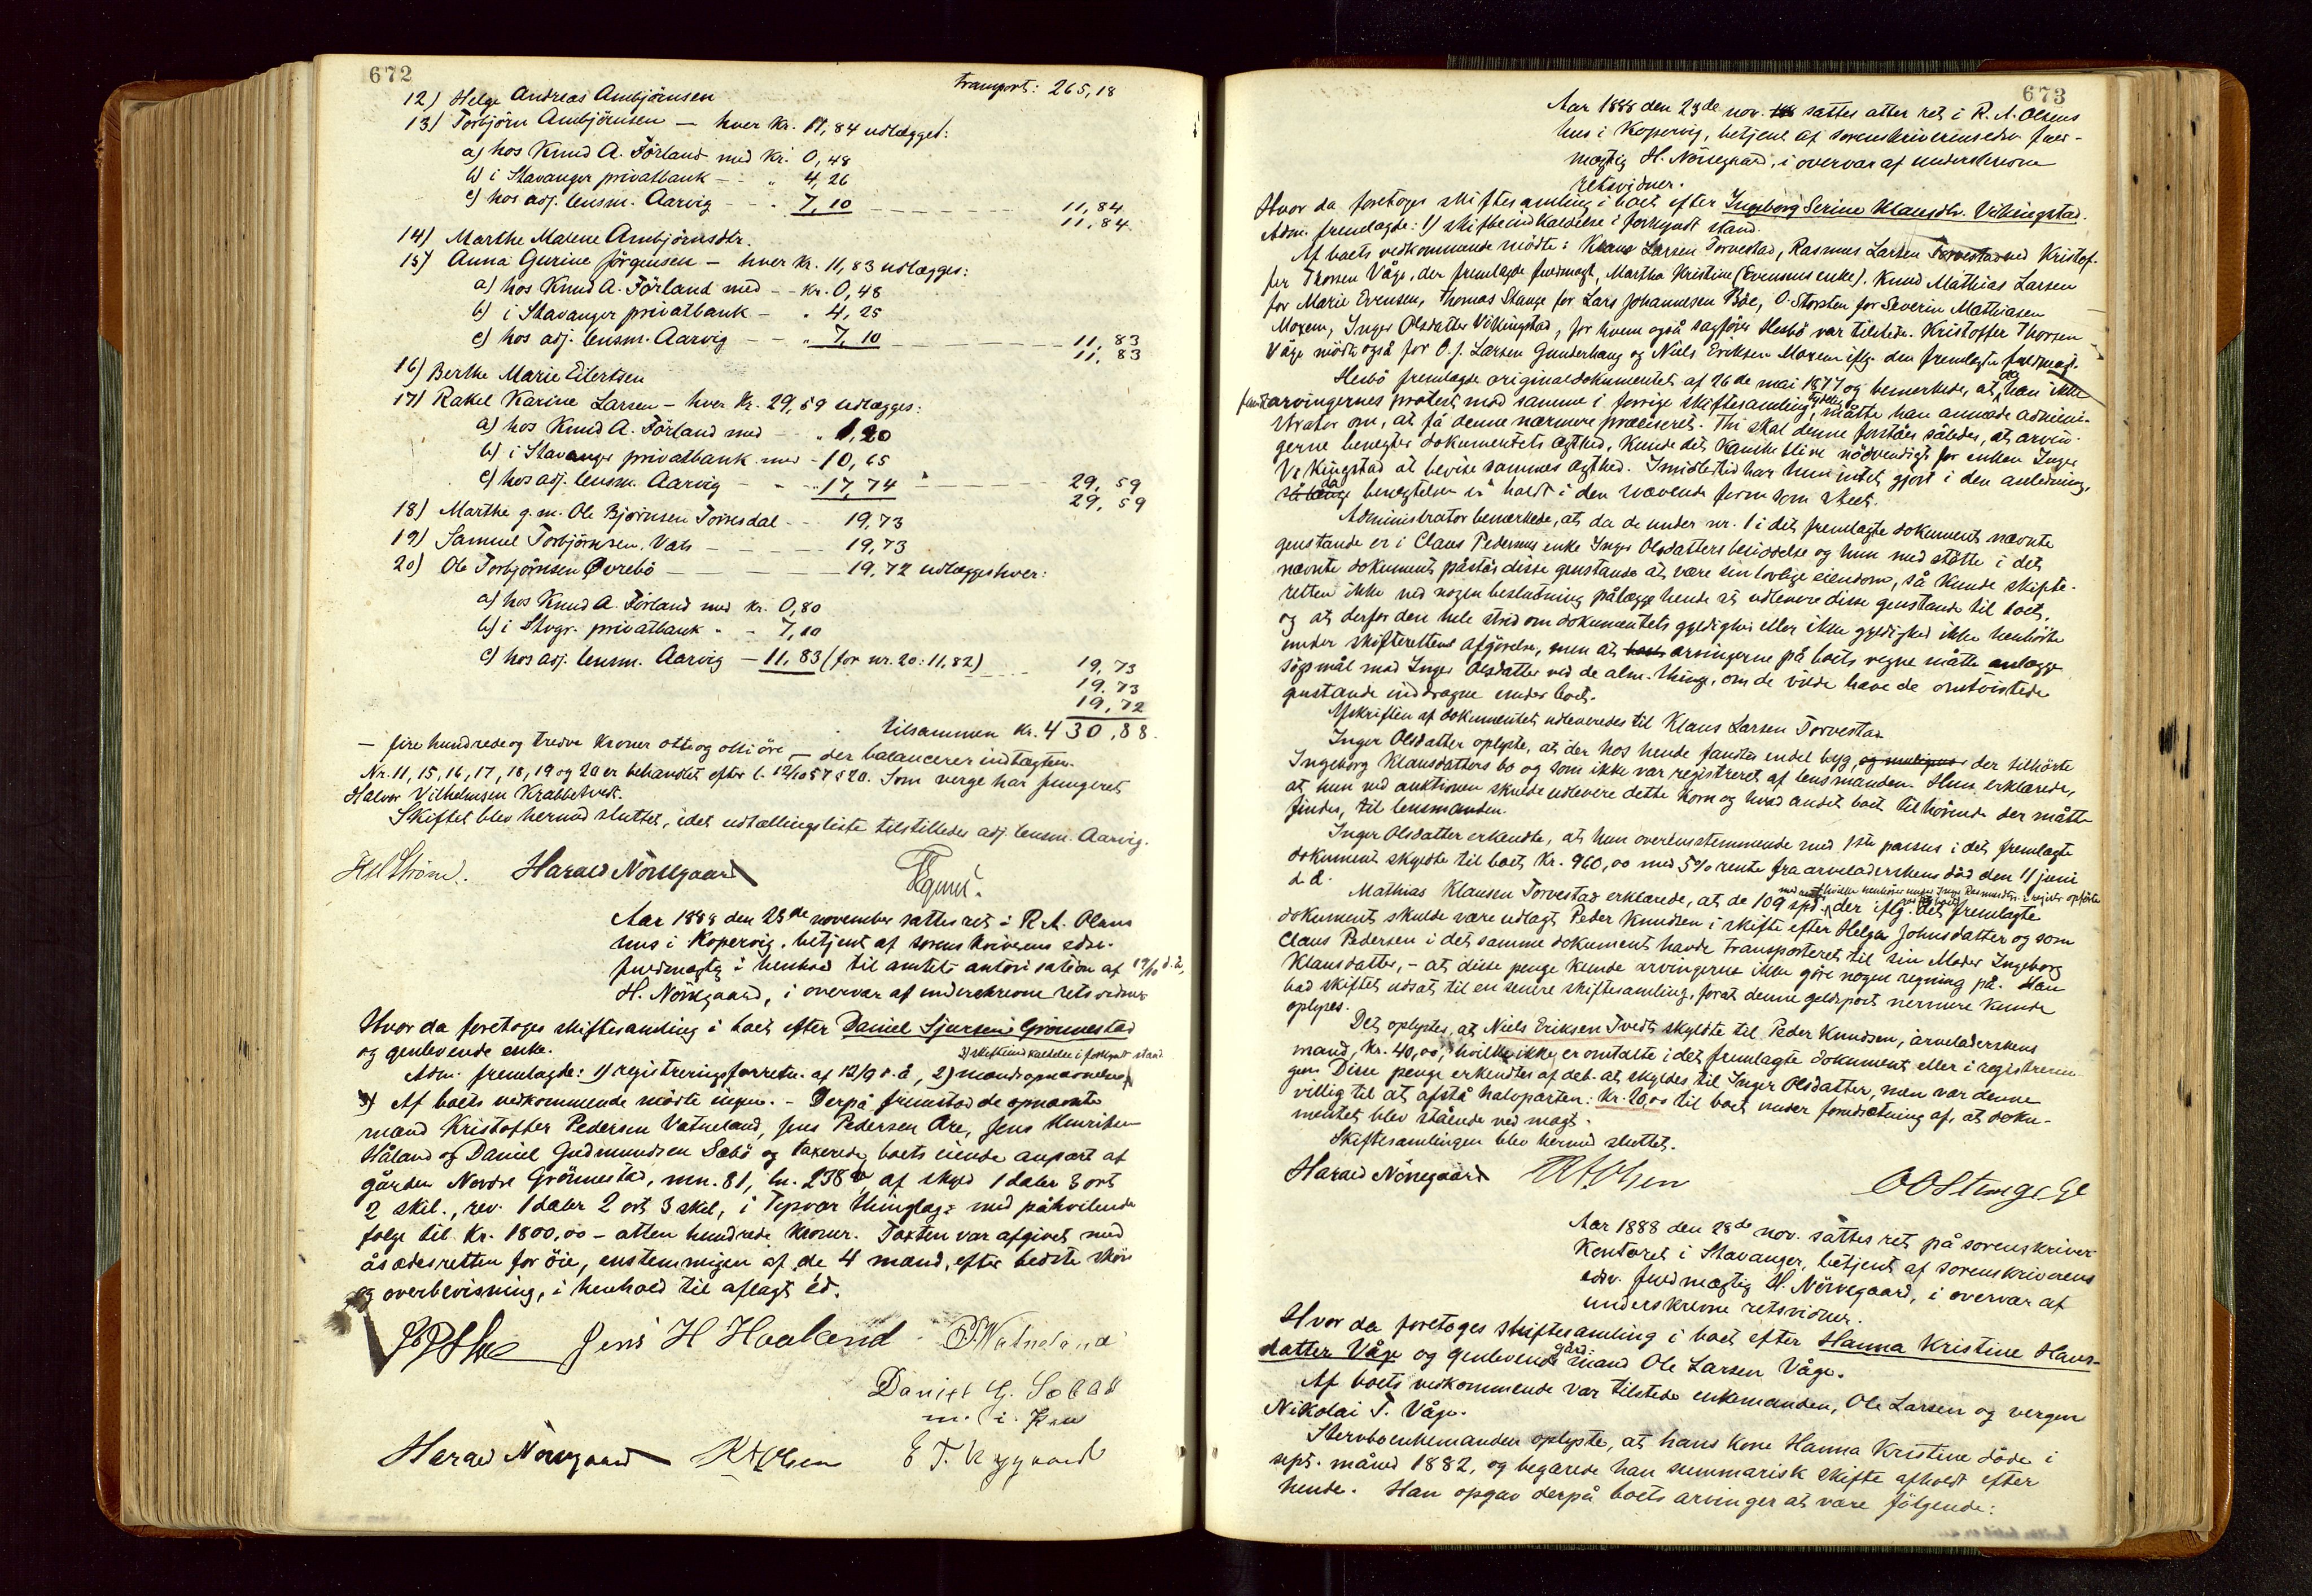 672
transport: 265,18
12) Helge Andreas Ambjörnsen
13) Torbjörn Ambjörnsen — hver kr. 11,84 udlægget:
a) hos Knud A. Förland med kr. 0,48
b) i Stavanger privatbank - - „ 4,26
c) hos adj. lensm. Aarvig - - „ 7,10 — — — 11,84
11,84
14) Marthe Malene Ambjörnsdtr.
15) Anna Gurine Jörgensen — hver kr. 11,83 udlægges:
a) hos Knud A. Förland med - - kr. 0,48
b) i Stavanger privatbank - „ 4,25
c) hos adj. lensm. Aarvig - - „ 7,10 — — — 11,83
11,83
16) Berthe Marie Eilertsen
17) Rakel Karine Larsen - hver kr. 29,59 udlægges:
a) hos Knud A. Förland med - - „ 1,20
b) i Stavanger privatbank med - 10,65
c) hos adj. lensm. Aarvig - - - 17,74 — — — 29,59
29,59
18) Marthe g. m. Ole Björnsen - - 19,73
19) Samuel Torbjörnsen Vats — — 19,73
20) Ole Torbjörnsen Øvrebö — — 19,72 udlægges hver:
a) hos Knud A. Förland med kr. 0,80
b) i Stvgr. privatbank - - 7,10
c) hos adj. lensm. Aarvig — 11,83 (for nr. 20: 11,82) — — 19,73
19,73
19,72
tilsammen kr. 430,88.
— fire hundrede og tredve kroner otte og otti öre — der balancerer indtægten.
Nr. 11, 15, 16, 17, 18, 19 og 20 er behandlet efter l. 12/10 57 § 20. Som verge har fungeret
Halvor Vilhelmsen Krabbetvedt.
Skiftet blev hermed sluttet, idet udtællingsliste tilstilledes adj. lensm. Aarvig.
Harald Nörregaard
Aar 1888 den 23de november sattes ret i R. A. Olsens
hus i Kopervig, betjent af sorenskriverens edsv.
fuldmægtig i henhold til amtets autorisation af 19/10 d. å,
H. Nörregaard, i overvær af underskrevne retsvidner
Hvor da foretoges skiftesamling i boet efter Daniel Sjursen Grönnestad
og genlevende enke.
Adm. fremlagde: 1) registreringsforretn. af 12/9 d. å, 2) mandsopnævnelse, 3) skifteindkaldelse i forkyndt stand
Af boets vedkommende mödte ingen. - Derpå fremstod de opnævnte
mænd Kristoffer Pedersen Vatneland, Jens Pedersen Are, Jens Henriksen
Håland og Daniel Gudmundsen Sæbö og taxerede boets eiende anpart af
gården Nordre Grönnestad, mn. 81, ln. 238 af skyld 1 daler 3 ort
2 skil., rev. 1 daler 2 ort 3 skil, i Tysvær thinglag med påhvilende
følge til kr. 1800,00 - atten hundrede kroner. Taxten var afgivet med
åsædesretten for öie, enstemmigen af de 4 mænd, efter bedste skjön
og overbevisning, i henhold til aflagt éd.
Jens H Haaland P Watneland
Daniel G. Sæbø
m. i. Pen
Harald Nörregaard RAOlsen E T. Rygaard
673
Aar 1888 den 23de nov. sattes atter ret i R. A. Olsens
hus i Kopervig, betjent af sorenskriverens edsv. fuld-
mægtig H. Nörregaard, i overvær af underskrevne
retsvidner.
Hvor da foretoges skiftesamling i boet efter Ingeborg Serine Klausdtr. Vikingstad.
Adm. fremlagde: 1) skifteindkaldelse i forkyndt stand.
Af boets vedkommende mödte: Klaus Larsen Torvestad, Rasmus Larsen Torvestad ved Kristof-
fer Thorsen Våge, der fremlagde fuldmagt, Martha Kristine (Evensens enke), Knud Mathias Larsen
for Marie Evensen, Thomas Stange for Lars Johannesen Böe, O. Storsten for Severin Mathiasen
Moxem, Inger Olsdatter Vikingstad, for hvem også sagförer Hesbö var tilstede. Kristoffer Thorsen
Våge mödte også for O. J. Larsen Gunderhaug og Niels Eriksen Moxem iflg. den fremlagte fuldmagt.
Hesbö fremlagde originaldokumentet af 26de mai 1877 og bemerkede, at da han ikke
fandt arvingernes protest mod samme i forrige skiftesamling tydelig, måtte han anmode admini-
strator om, at få denne nærmere præciseret. Thi skal denne forståes således, at arvin-
gerne benegter dokumentets ægthed, kunde det kanske blive nödvendigt for enken Inger
Vikingstad at bevise sammes ægthed. Imidlertid har hun intet gjort i den anledning,
da benegtelsen er holdt i den svævende form som skeet.
Administrator bemerkede, at da de under nr. 1 i det fremlagte dokument nævnte
genstande er i Claus Pedersens enke Inger Olsdatters besiddelse og hun med stötte i det
nævnte dokument påstår disse genstande at være sin lovlige eiendom, så kunde skifte-
retten ikke ved nogen beslutning pålægge hende at udlevere disse genstande til boet,
og at derfor den hele strid om dokumentets gyldighed eller ikke gyldighed ikke henhörte
under skifterettens afgjörelse, men at arvingerne på boets vegne måtte anlægge
sögsmål mod Inger Olsdatter ved de alm. thinge, om de vilde have de omtvistede
genstande inddragne under boet.
Afskriften af dokumentet udleveredes til Klaus Larsen Torvestad
Inger Olsdatter oplyste, at der hos hende fantes endel byg, der tilhörte
Ingeborg Klausdatters bo og som ikke var registreret af lensmanden. Hun erklærede,
at hun ved auktionen skulde udlevere dette korn og hvad andet boet tilhörende der måtte
findes, til lensmanden.
Inger Olsdatter erkendte, at hun overensstemmende med 1ste passus i det fremlagte
dokument skyldte til boet kr. 960,00 med 5% rente fra arveladerskens död den 11 juni
d. å.
Mathias Klausen Torvestad erklærede, at de 109 spd. der iflg. det fremlagte
dokument skulde være udlagt Peder Knudsen i skifte efter Helga Johnsdatter og som
Claus Pedersen i det samme dokument havde transporteret til sin Moder Ingeborg
Klausdatter, - at disse penge kunde arvingerne ikke göre nogen regning på. Han
bad skiftet udsat til en senere skiftesamling, forat denne geldspost nermere kunde
oplyses.
Det oplystes, at Niels Eriksen Tvedt skyldte til Peder Knudsen, arveladerskens
mand, kr. 40,00, hvilke ikke er omtalte i det fremlagte dokument eller i registrerin-
gen. Disse penge erkendtes af deb. at skyldes til Inger Olsdatter, men var denne
villig til at afstå halvparten: kr. 20,00 til boet under forudsætning af, at doku-
mentet blev stående ved magt.
Skiftesamlingen blev hermed sluttet.
Harald Nörregaard RAOlsen
Aar 1888 den 28de nov. sattes ret på sorenskriver-
kontoret i Stavanger, betjent af sorenskriverens
edsv. fuldmægtig H. Nörregaard, i overvær af
underskrevne retsvidner.
Hvor da foretoges skiftesamling i boet efter Hanna Kristine Hans-
datter Våge og genlevende gård: mand Ole Larsen Våge.
Af boets vedkommende var tilstede enkemanden, Ole Larsen og vergen
Nikolai T. Våge.
Stervboenkemanden oplyste, at hans kone Hanna Kristine döde i
sept. måned 1882, og begærede han summarisk skifte afholdt efter
hende. Han opgav derpå boets arvinger at være fölgende: